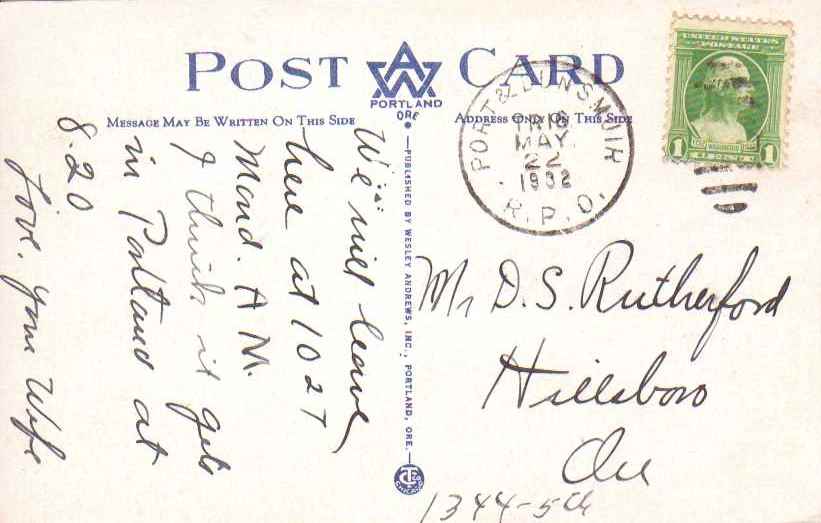 POST CARD
AW
PORTLAND
ORE
MESSAGE MAY BE WRITTEN ON THIS SIDE
ADDRESS ONLY ON THIS SIDE
PORT & DUNSMUIR
TR 16
MAY
22
1932
R.P.O.
UNITED STATES
POSTAGE
WASHINGTON
1 1
We will leave
here at 10 27
Mond. A M.
I think it gets
in Portland at
8.20
Love. your Wife
PUBLISHED BY WESLEY ANDREWS, INC., PORTLAND, ORE.
Mr D. S. Rutherford
Hillsboro
Ore
1344-5th